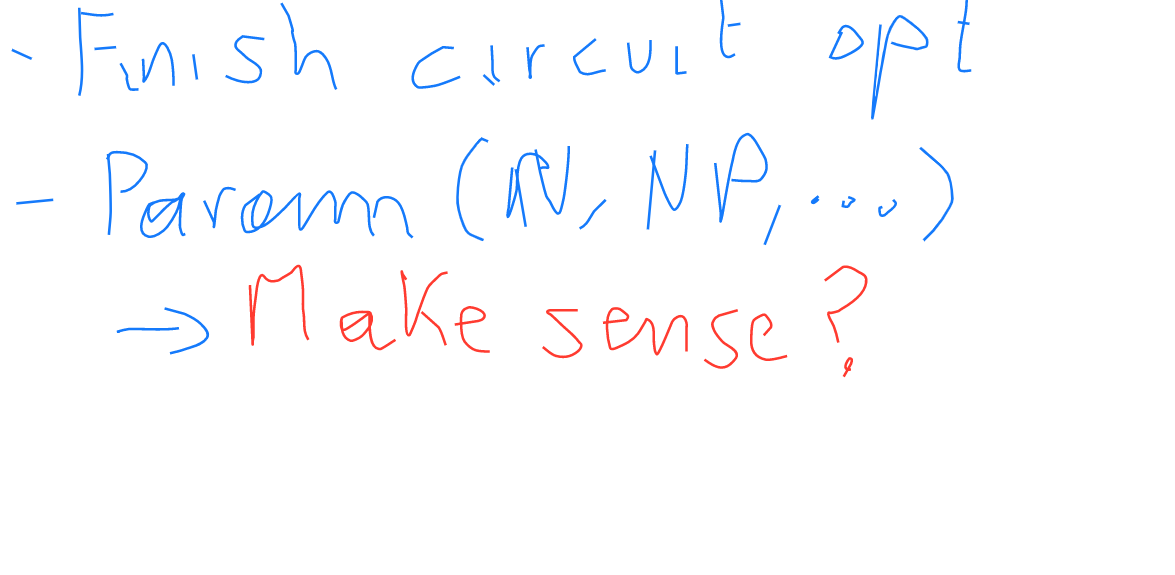 - Finish circuit opt
- Param (N, NP, ...)
→ Make sense?